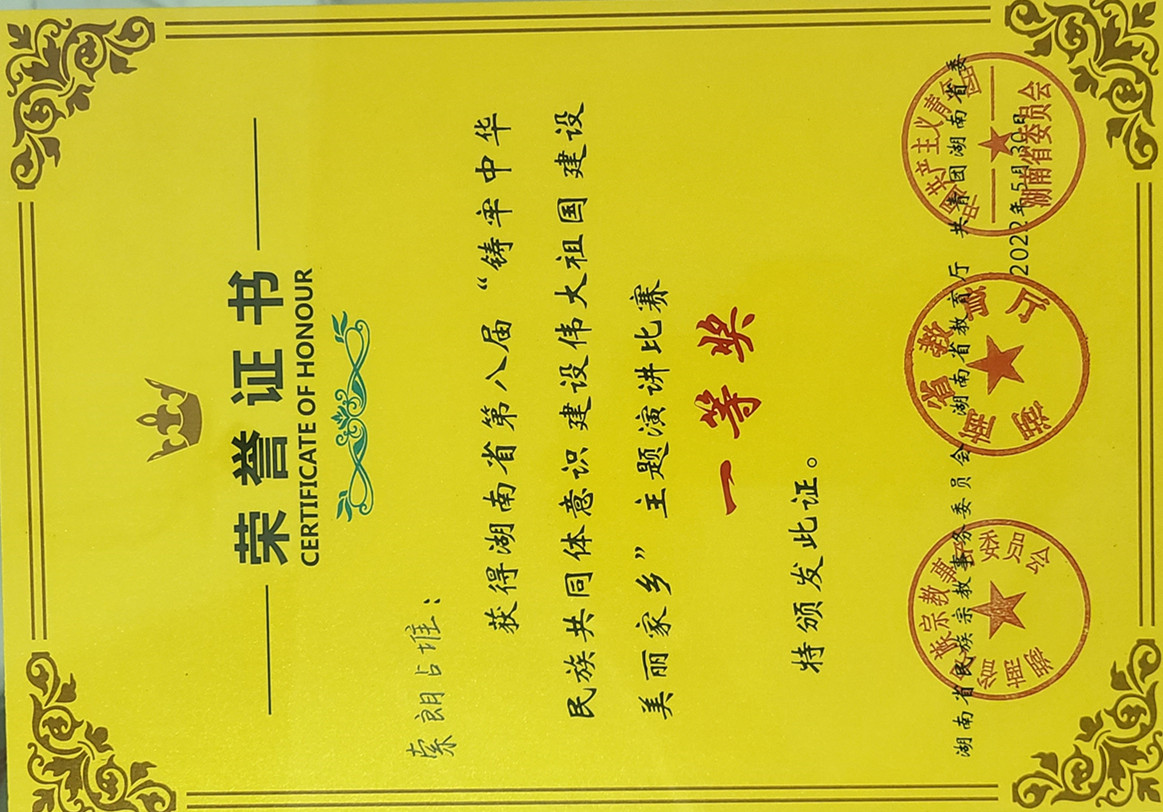 荣誉证书
CERTIFICATE OF HONOUR
索朗占堆：
获得湖南省第八届“铸牢中华
民族共同体意识 建设伟大祖国 建设
美丽家乡”主题演讲比赛
一等奖
特颁发此证。
湖南省民族宗教事务委员会 湖南省教育厅 共青团湖南省委
2022年5月30日
湖南省民族宗教事务委员会
湖南省教育厅
中国共产主义青年团
湖南省委员会